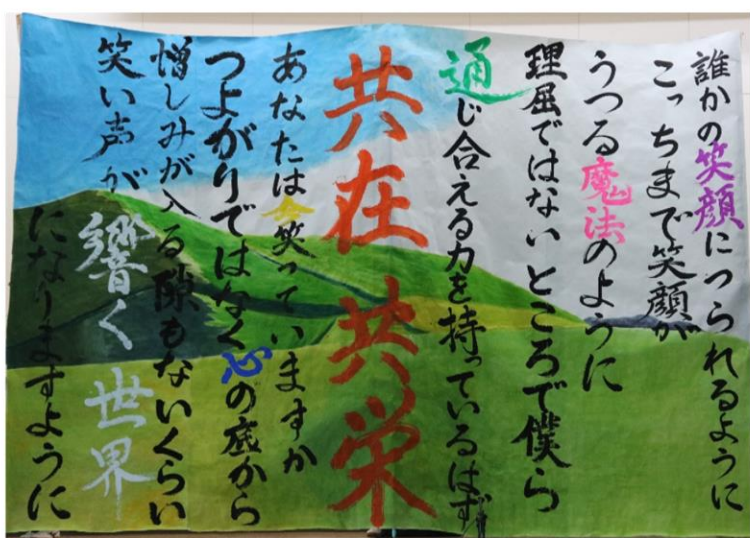 誰かの笑顔につられるように
こっちまで笑顔が
うつる魔法のように
理屈ではないところで僕ら
通じ合える力を持っているはず
共在共栄
あなたは今笑っていますか
つよがりではなく心の底から
憎しみが入る隙もないくらい
笑い声が響く世界
になりますように